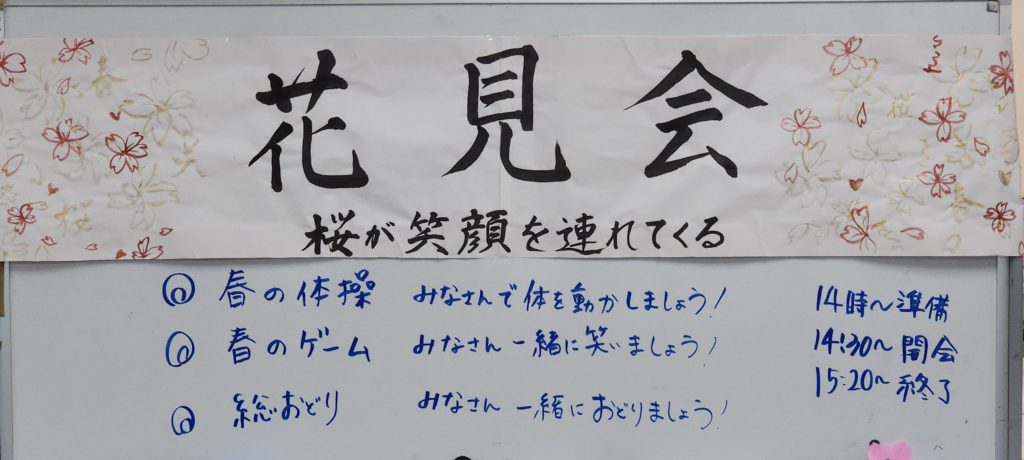 花見会
桜が笑顔を連れてくる
◎ 春の体操 みなさんで体を動かしましょう! 14時~準備
◎ 春のゲーム みなさん一緒に笑いましょう! 14:30~開会
◎ 総おどり みなさん一緒におどりましょう! 15:20~終了
春
桜